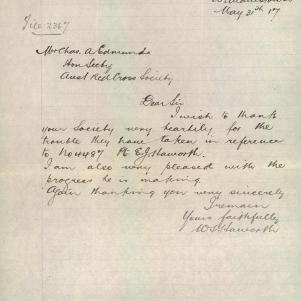 File 2367
May 31th 17
Mr Chas. A Edmunds
Hon Secty
Aust Red Cross Society
Dear Sir
I wish to thank
your Society very heartily for the
trouble they have taken in reference
to No 4487 Pt E J Haworth.
I am also very pleased with the
progress he is making.
Again thanking you very sincerely
I remain
Yours faithfully
W Haworth